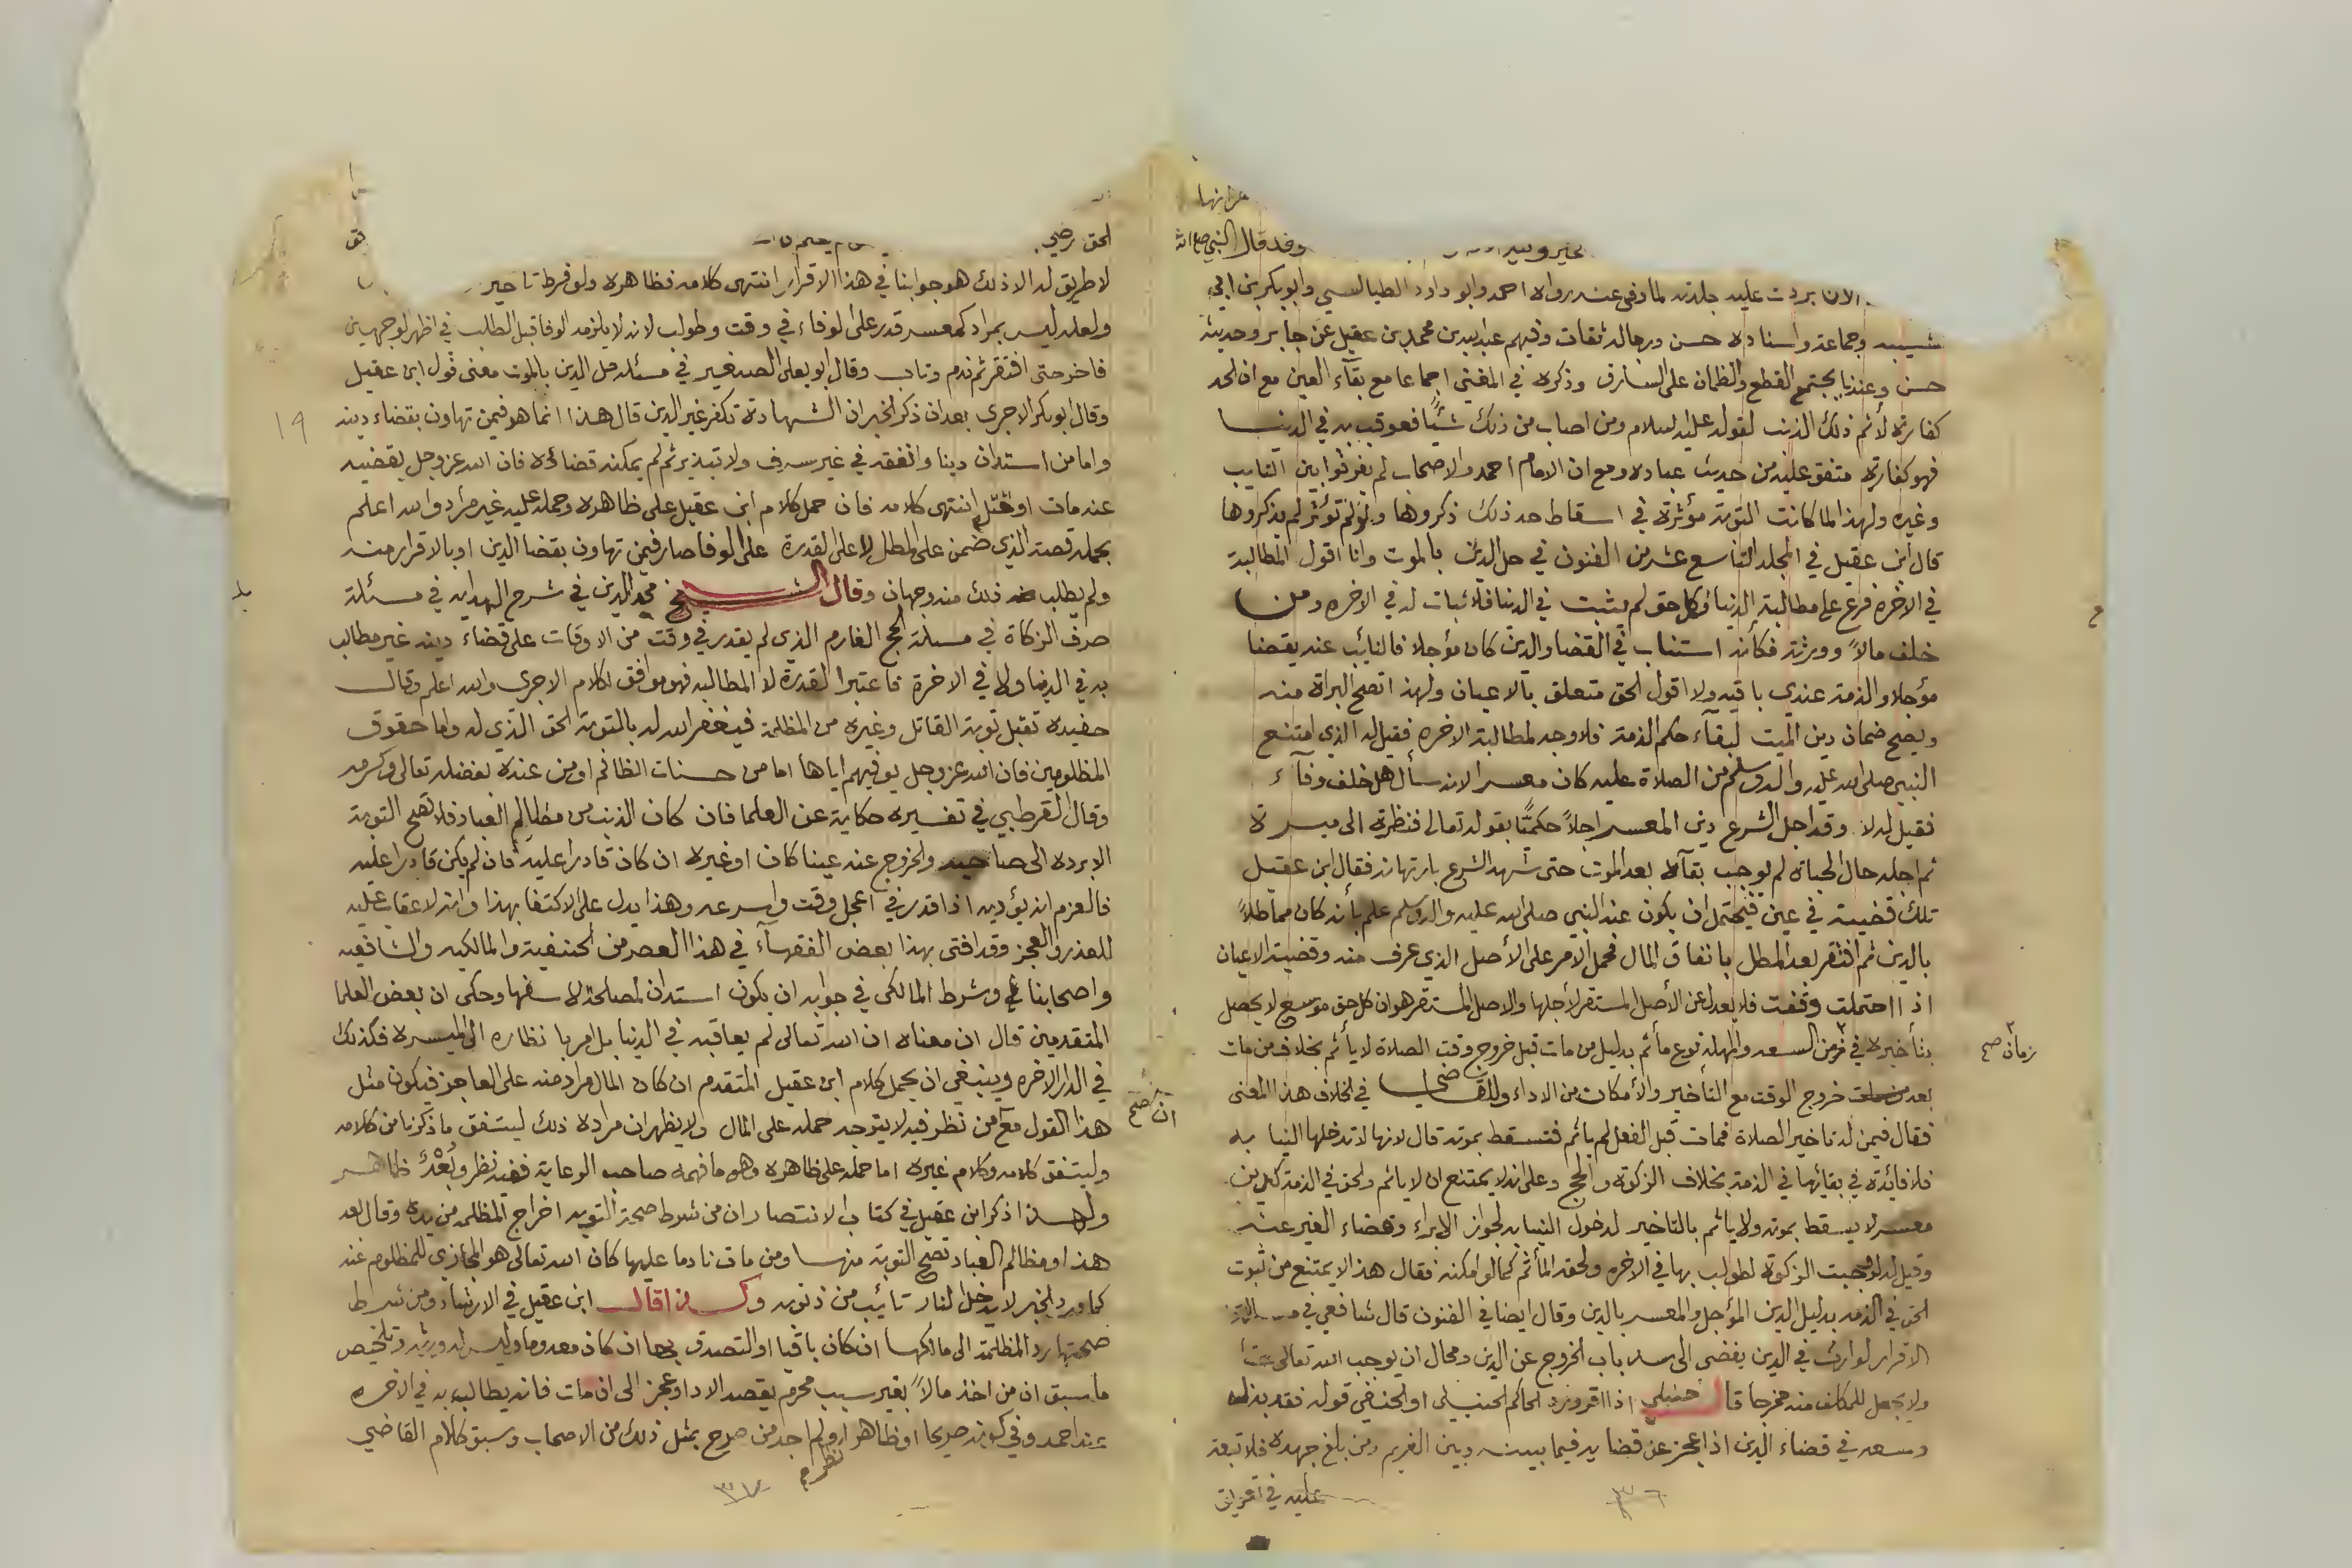 وقد قال النبي صلى الله
الان بردت عليه جلدته لما وفى عنه رواه احمد وابو داود الطيالسي وابو بكر بن ابي
شيبه وجماعة واسناده حسن ورجاله ثقات وفيهم عبدالله بن محمد بن عقيل عن جابر وحديثه
حسن وعندنا يجتمع القطع والظمان على السارق وذكره في المغني اجماعا مع بقآء العين مع ان الحد
كفارة لأثم ذلك الذنب لقوله عليه السلام ومن اصاب من ذلك شيأً فعوقب به في الدنيا
فهو كفارته متفق عليه من حديث عباده ومع ان الامام احمد والاصحاب لم يفرقوا بين التايب
وغيره ولهذا لما كانت التوبة مؤثرة في اسقاط حد ذلك ذكروها ولو لم تؤثر لم يذكروها
قال ابن عقيل في المجلد التاسع عشر من الفنون في حل الدين بالموت وانا اقول المطالبة
في الاخره فرع على مطالبة الدنيا وكل حق لم يثبت في الدنيا فلا ثبات له في الاخره ومن
خلف مالاً وورثة فكأنه استناب في القضا والدين كان مؤجلا فالنائب عنه يقضنا
مؤجلا والذمة عندي باقيه ولا اقول الحق متعلق بالاعيان ولهذا تصح البراة منه
ويصح ضمان دين الميت لبقاء حكم الذمة فلا وجه لمطالبة الاخره فقيل له الذي امتنع
النبي صلى الله عليه واله وسلم من الصلاة عليه كان معسرا لانه سأل هل خلف وفآء
فقيل له لا وقد اجل الشرع دين المعسر اجلاً حكميًّا بقوله تعالى فنظرة الى ميسرة
ثم اجله حال الحياة لم يوجب بقآه بعد الموت حتى شهد الشرع بارتهانه فقال ابن عقيل
تلك قضية في عين فيحتمل ان يكون عند النبي صلى الله عليه واله وسلم علم بأنه كان مماطلاً
بالدين ثم افتقر بعد المطل بانفاق المال فحمل الامر على الأصل الذي عرف منه وقضية الاعيان
اذا احتملت وقفت فلا يعدل عن الأصل المستقر لأجلها والاصل المستقر هو ان كل حق موسع لا يحصل
بتأخيره في زمن السعه والمهلة نوع مأثم بدليل من مات قبل خروج وقت الصلاة لا يأثم بخلاف من مات
زمان صح
بعد خروج الوقت مع التأخير والأمكان من الاداء وللقاضي في الخلاف هذا المعنى
فقال فيمن له تاخير الصلاة فمات قبل الفعل لم يائم فتسقط بموته قال لانها لا تدخلها النيابه
فلا فائدة في بقائها في الذمة بخلاف الزكوة والحج وعلى انه لا يمتنع ان لا يائم والحق في الذمة كدين
معسر لا يسقط بموته ولا ياثم بالتاخير لدخول النيابه لجواز الابراء وقضاء الغير عنه
وقيل له لو وجبت الزكوة لطولب بها في الاخره ولحقه المأثم كما لو امكنه فقال هذا لا يمتنع من ثبوت
الحق في الذمه بدليل الدين المؤجل والمعسر بالدين وقال ايضا في الفنون قال شافعي في مسالة
الاقرار لوارث في الدين يفضى الى سد باب الخروج عن الدين ومحال ان يوجب الله تعالى حقاً
ولا يجعل للمكلف منه مخرجا قال حنبلي اذا اقر ورد الحاكم الحنبلي او الحنفي قوله فقد بذل
وسعه في قضاء الدين اذا عجز عن قضايه فيما بينه وبين الغريم ومن بلغ جهده فلا تبعة
عليه في اقراره
٣٦
الحق رضي
لا طريق له الا ذلك هو جوابنا في هذا الاقرار انتهى كلامه فظاهره ولو فرط تاخير
ولعله ليس بمراد كمعسر قدر على الوفاء في وقت وطولب لانه لا يلزمه الوفا قبل الطلب في اظهر الوجهين
فاخر حتى افتقر ثم ندم وتاب وقال ابو يعلى الصغير في مسئلة حل الدين بالموت معنى قول ابن عقيل
وقال ابو بكر الاجرى بعد ان ذكر الخبر ان الشهادة تكفر غير الدين قال هذا انما هو فيمن تهاون بقضاء دينه
١٩
واما من استدان دينا وانفقه في غير سرف ولا تبذير ثم لم يمكنه قضاءه فان الله عز وجل يقضيه
عنه مات او قتل انتهى كلامه فان حمل كلام ابن عقيل على ظاهره وحمله عليه غير مراد والله اعلم
بجمله قصته الذي ضمن على المطل لا على القدرة على الوفا صار فيمن تهاون بقضا الدين او بالاقرار منه
ولم يطلب ذلك منه وجهان وقال الشيخ مجد الدين في شرح الهدايه في مسئلة
صرف الزكاة في مسئلة الحج الغارم الذي لم يقدر في وقت من الاوقات على قضاء دينه غير مطالب
به في الدنيا ولا في الاخرة فاعتبر القدرة لا المطالبه فهو موافق لكلام الاجرى والله اعلم وقال
حفيده تقبل توبة القاتل وغيره من المظلمة فيغفر الله له بالتوبة الحق الذي له واما حقوق
المظلومين فان الله عز وجل يوفيهم اياها اما من حسنات الظالم او من عنده بفضله تعالى وكرمه
وقال القرطبي في تفسيره حكاية عن العلما فان كان الذنب من مظالم العباد فلا تصح التوبة
الا برده الى صاحبه والخروج عنه عينا كان او غيره ان كان قادرا عليه فان لم يكن قادرا عليه
فالعزم ان يؤديه اذا قدر في اعجل وقت واسرعه وهذا يدل على الاكتفا بهذا وانه لا عقاب عليه
للعذر والعجز وقد افتى بهذا بعض الفقهآء في هذا العصر من الحنفية والمالكيه والشافعيه
واصحابنا وشرط المالكي في جوابه ان يكون استدان لمصلحة لا سفها وحكى ان بعض العلما
المتقدمين قال ان معناه ان الله تعالى لم يعاقبه في الدنيا بل امر بانظاره الى الميسره فكذلك
في الدار الاخره وينبغي ان يحمل كلام ابن عقيل المتقدم ان كان المال مراد منه على العاجز فيكون مثل
ان صح
هذا القول مع من نظر فيه لا يتوجه حمله على المال ولا يظهر ان مراده ذلك ليتفق ما ذكرنا من كلامه
وليتفق كلامه وكلام غيره اما حمله على ظاهره وهو ما فهمه صاحب الرعاية ففيه نظر وبُعْدٌ ظاهر
ولهذا ذكر ابن عقيل في كتاب الانتصار ان من شرط صحة التوبه اخراج المظلمه من يده وقال بعد
هذا ومظالم العباد تصح التوبة منها ومن مات نادما عليها كان الله تعالى هو المجازي للمظلوم عنه
كما ورد الخبر لا يدخل النار تائب من ذنوبه وكذا قال ابن عقيل في الارشاد ومن شرط
صحتها رد المظلمة الى مالكها ان كان باقيا او التصدق بها ان كان معدوما وليس له ورثه وتلخيص
ما سبق ان من اخذ مالاً بغير سبب محرم يقصد الادا وعجز الى ان مات فانه يطالب به في الاخره
عند احمد وفي كونه صريحا او ظاهرا نظر ولم اجد من صرح بمثل ذلك من الاصحاب وسبق كلام القاضي
٣٧